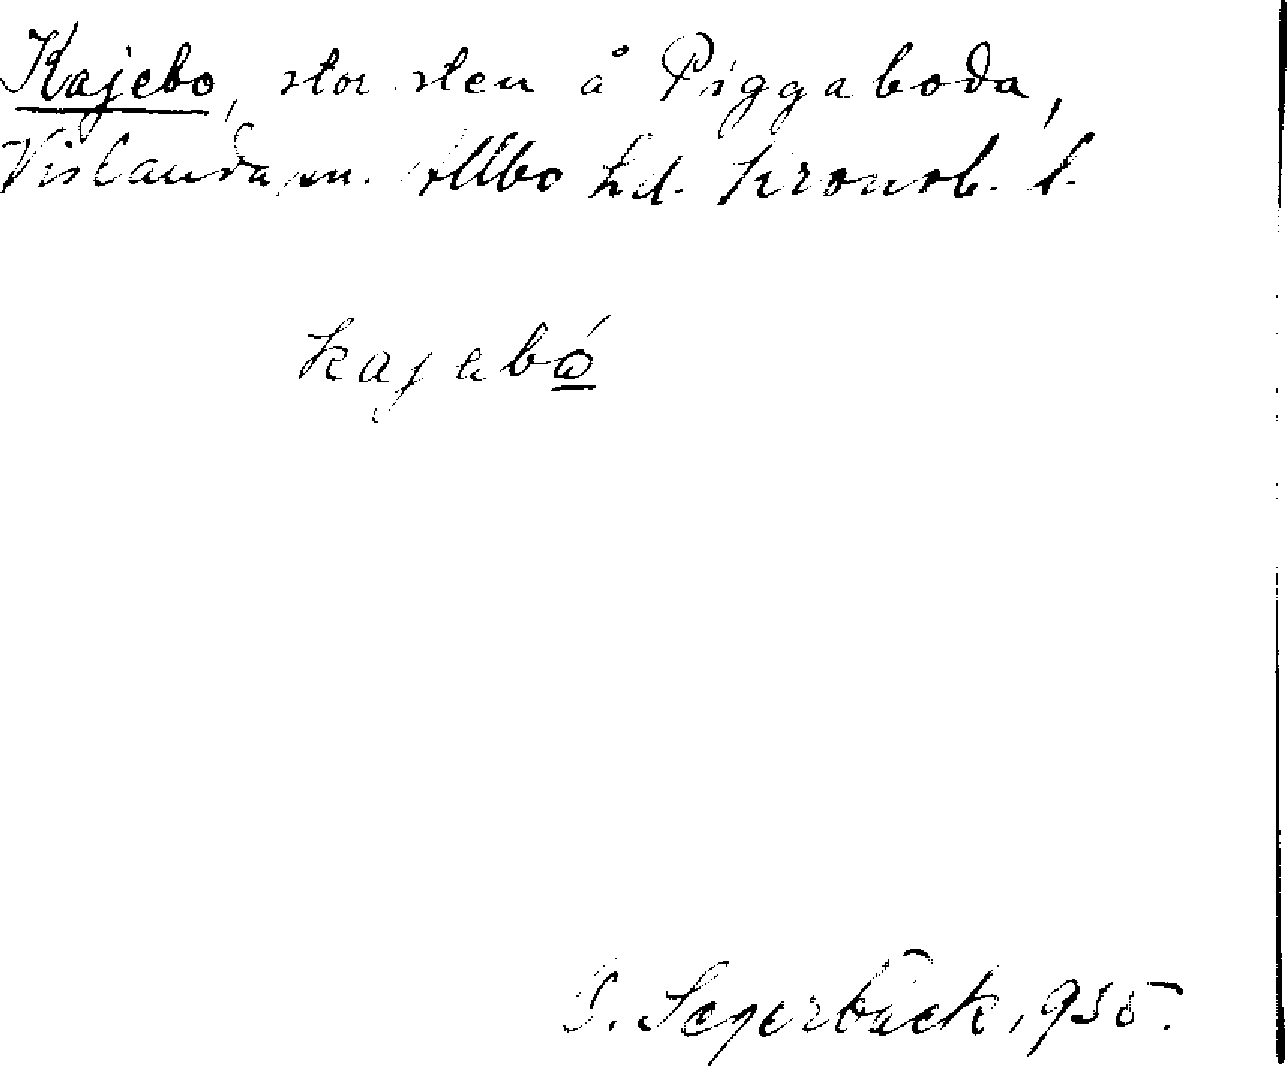 Kajebo, stor sten å Piggaboda,
Vislanda sn. Allbo hd. Kronob. l.
kajabó
S. Segerbäck, 1935.